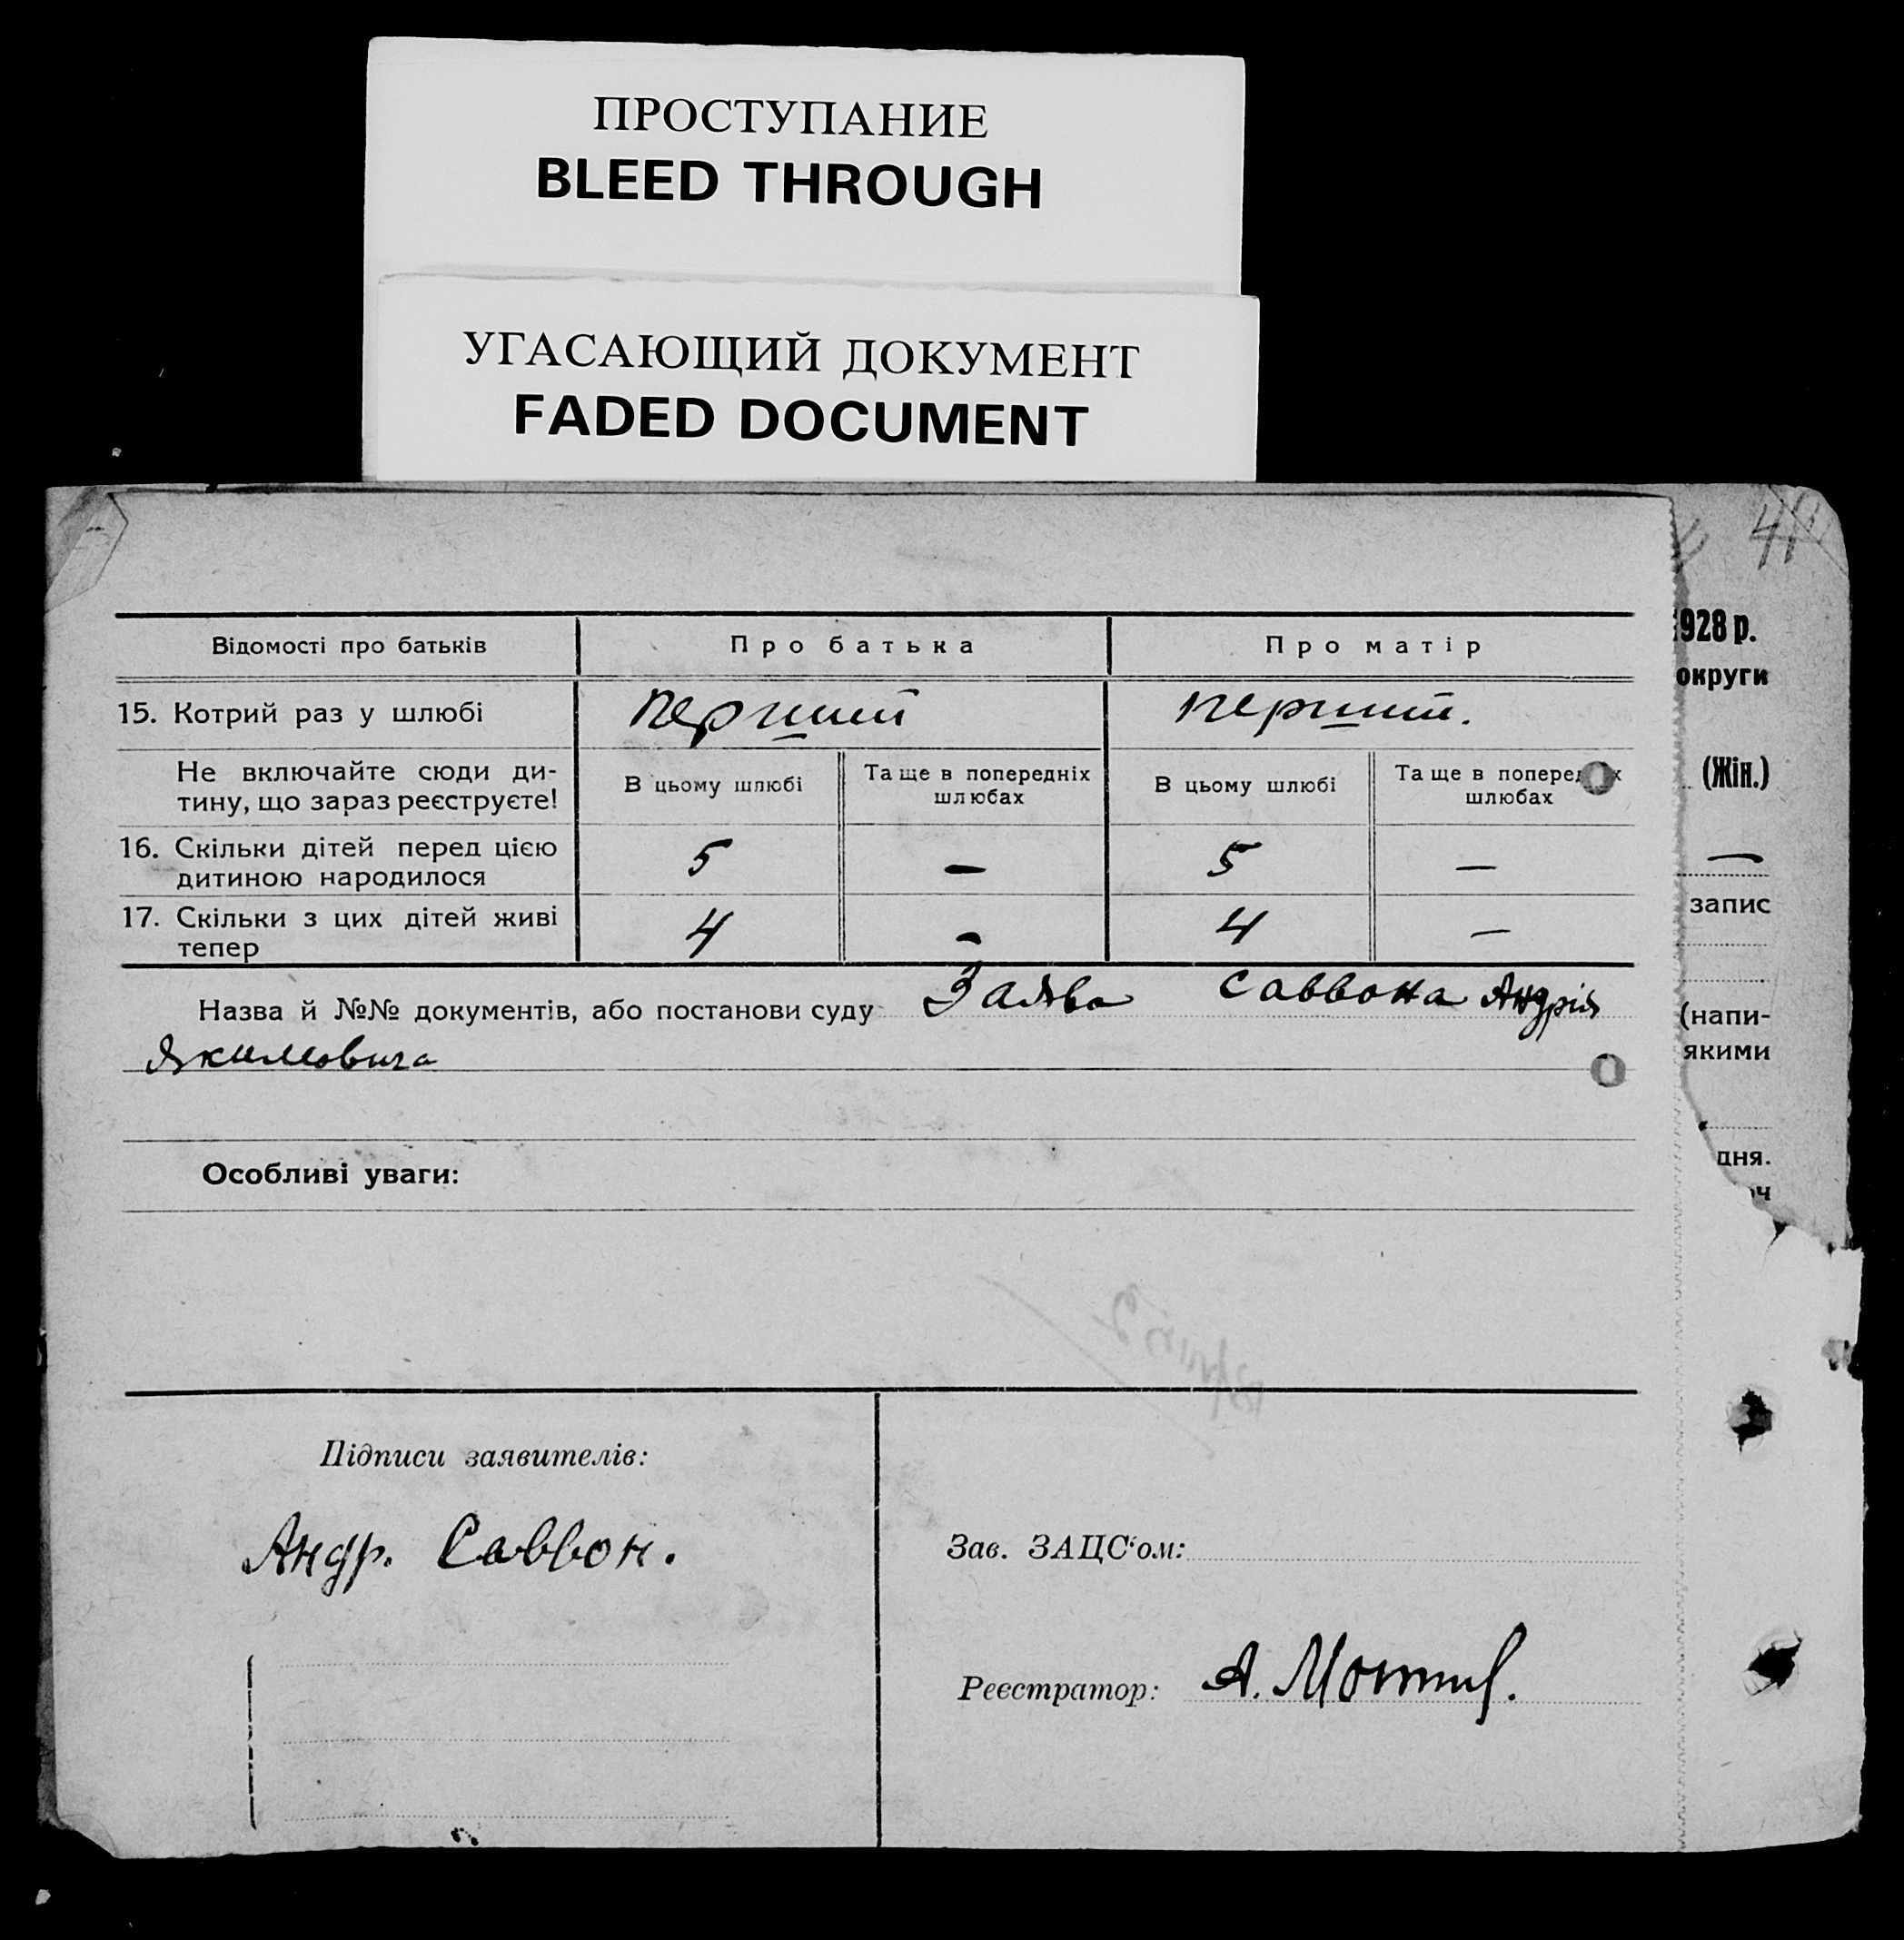 ПРОСТУПАНИЕ
BLEED THROUGH
УГАСАЮЩИЙ ДОКУМЕНТ
FADED DOCUMENT
41
928 р.
округи
(Жін.)
—
запис
(напи-
якими
дня.
Відомості про батьків Про батька Про матір
15. Котрий раз у шлюбі перший перший.
Не включайте сюди ди-
тину, що зараз реєструєте!
В цьому шлюбі Та ще в попередніх шлюбах В цьому шлюбі Та ще в поперед х шлюбах
16. Скільки дітей перед цією
дитиною народилося 5 — 5 —
17. Скільки з цих дітей живі
тепер 4 - 4 —
Назва й №№ документів, або постанови суду Заява Саввона Андрія
Якимовича
Особливі уваги:
Підписи заявителів:
Андр. Саввон.
Зав. ЗАЦС'ом:
Реєстратор: А.